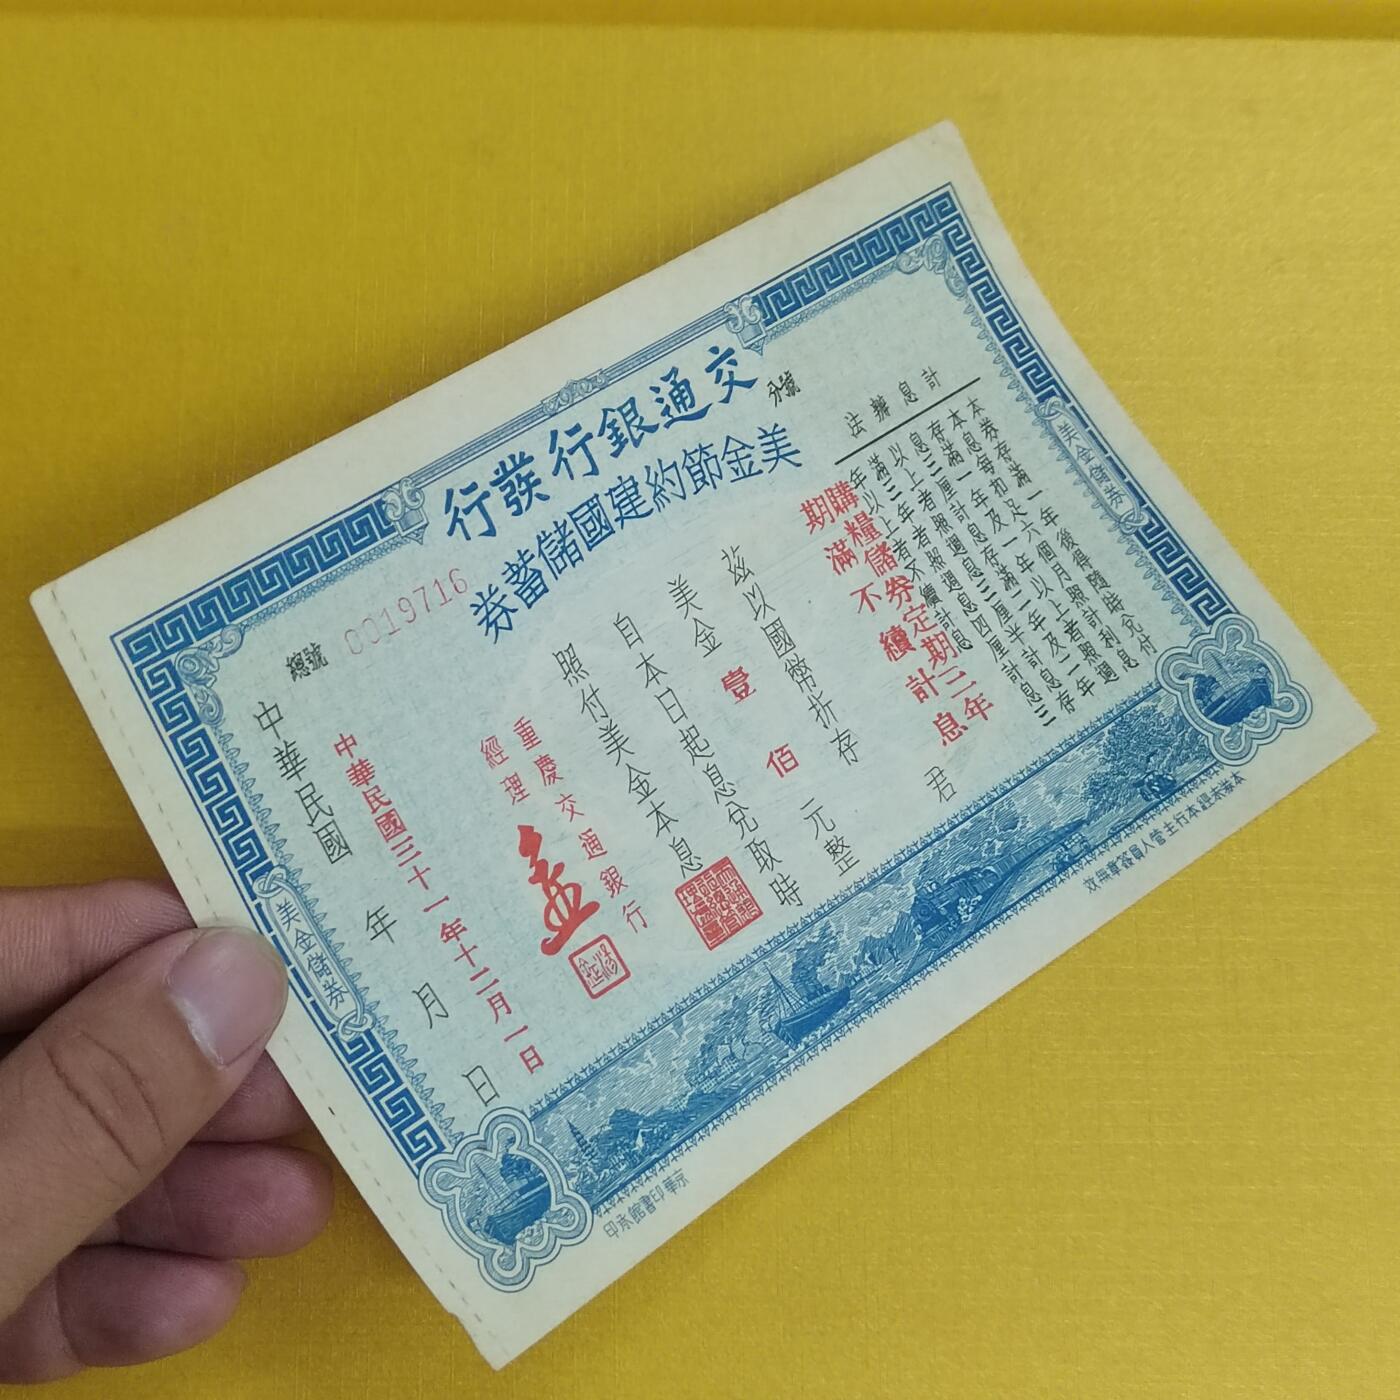 交通銀行發行
美金節約建國儲蓄券
分號
總號 0019716
計息辦法
本券存滿一年後得隨時兌付
本息每 足六個月照計利息
存滿一年及一年以上者照週
息三厘計息存滿二年及二年
以上者照週息三厘半計息存
滿三年者照週息四厘計息三
年以上者不續計息
購糧儲券定期三年
期滿不續計息
君
茲以國幣折存
美金壹佰元整
自本日起息兌取時
照付美金本息
重慶交通銀行
經理
中華民國三十一年十二月一日
中華民國 年 月 日
美金儲券
美金儲券
本券未經本行主管人員簽章無效
京華印書館承印